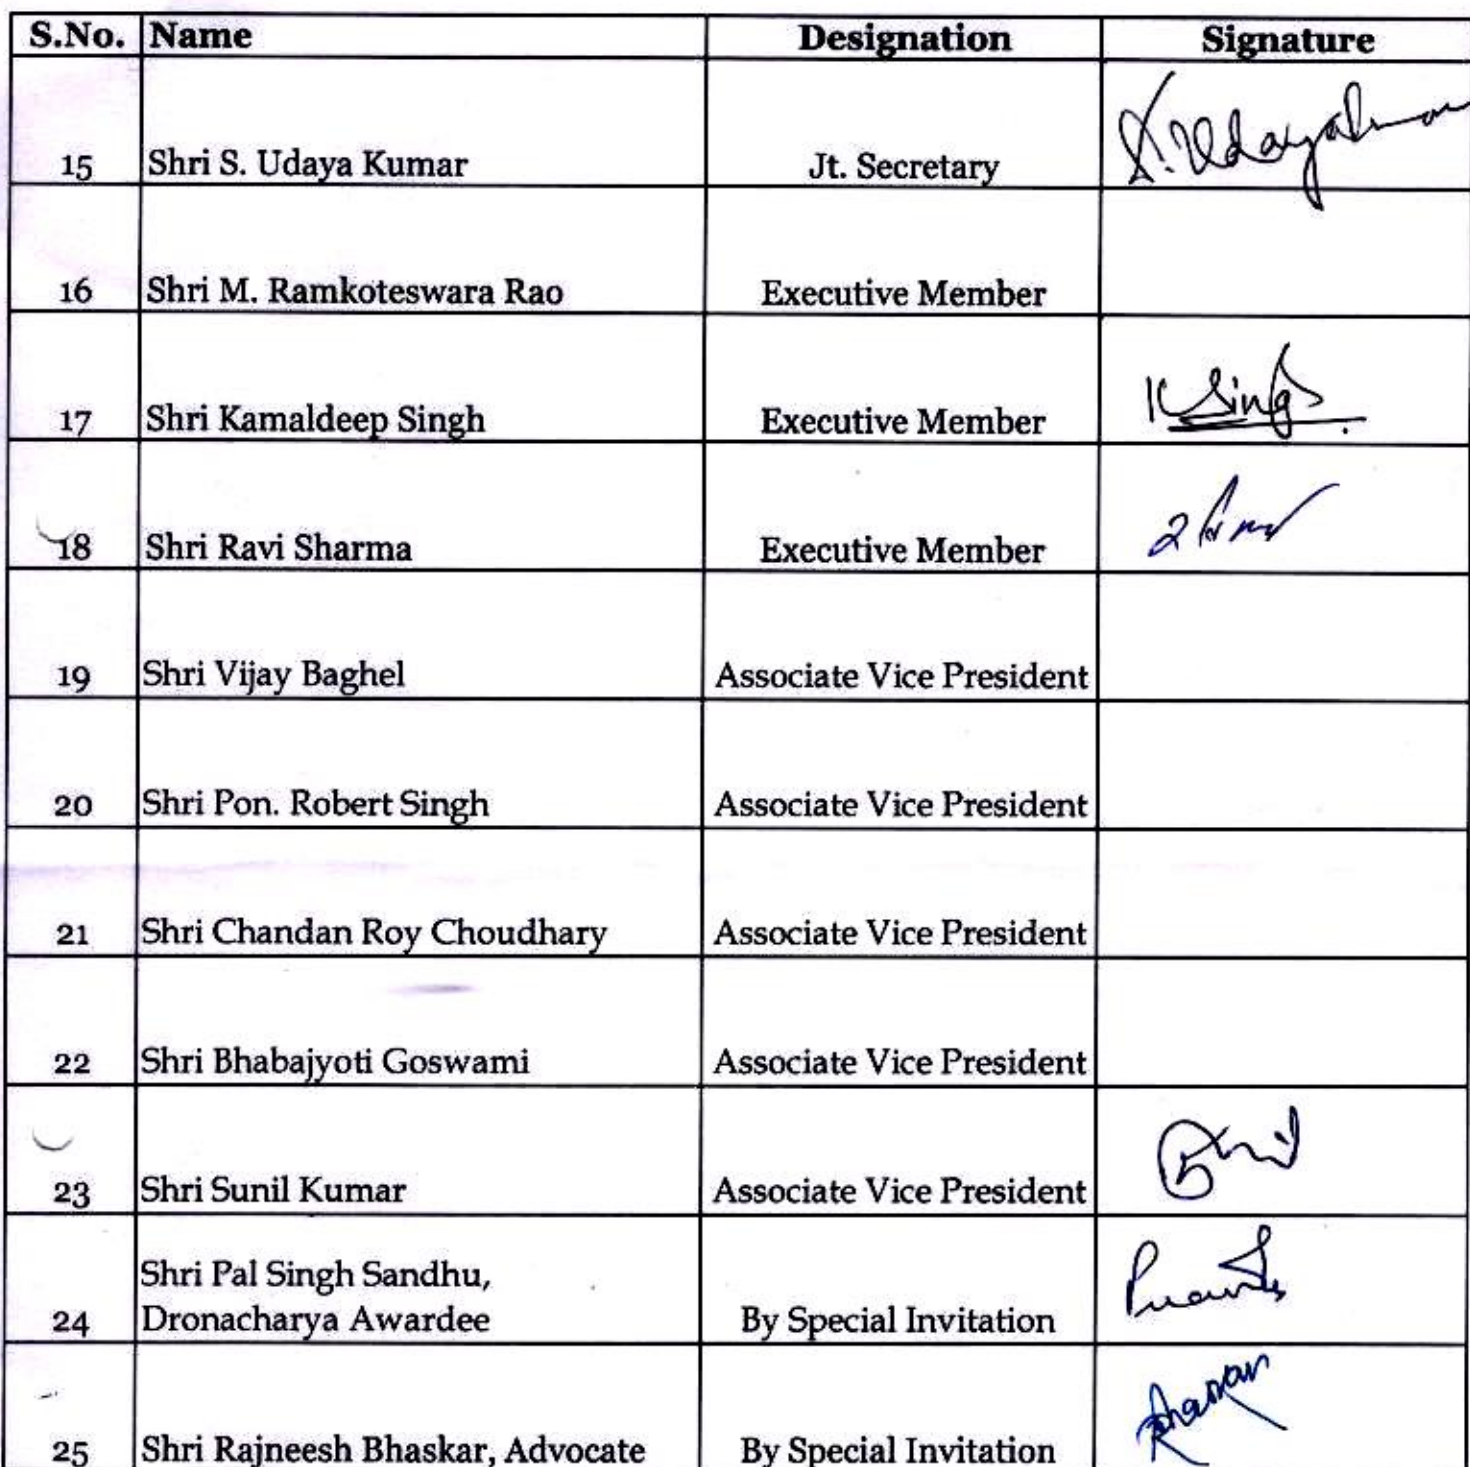 S.No. Name Designation Signature
15 Shri S. Udaya Kumar Jt. Secretary S. Udayakumar
16 Shri M. Ramkoteswara Rao Executive Member
17 Shri Kamaldeep Singh Executive Member K Singh
18 Shri Ravi Sharma Executive Member
19 Shri Vijay Baghel Associate Vice President
20 Shri Pon. Robert Singh Associate Vice President
21 Shri Chandan Roy Choudhary Associate Vice President
22 Shri Bhabajyoti Goswami Associate Vice President
23 Shri Sunil Kumar Associate Vice President Sunil
Shri Pal Singh Sandhu,
24 Dronacharya Awardee By Special Invitation
25 Shri Rajneesh Bhaskar, Advocate By Special Invitation